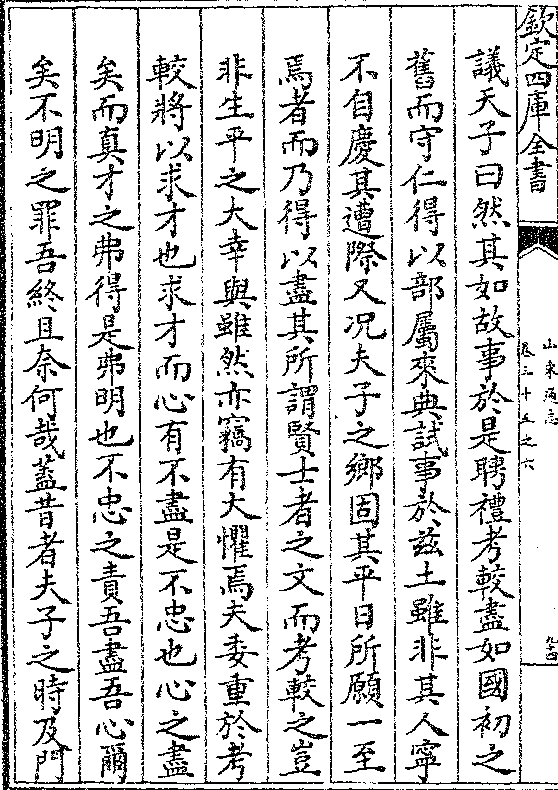 欽定四庫全書
山東通志
卷三十五之六
九四
議天子曰然其如故事於是聘禮考較盡如國初之
舊而守仁得以部屬來典試事於兹土雖非其人寧
不自慶其遭際又况夫子之鄉固其平日所願一至
焉者而乃得以盡其所謂賢士者之文而考較之豈
非生平之大幸與雖然亦竊有大懼焉夫委重於考
較將以求才也求才而心有不盡是不忠也心之盡
矣而真才之弗得是弗明也不忠之責吾盡吾心爾
矣不明之罪吾終且奈何哉蓋昔者夫子之時及門